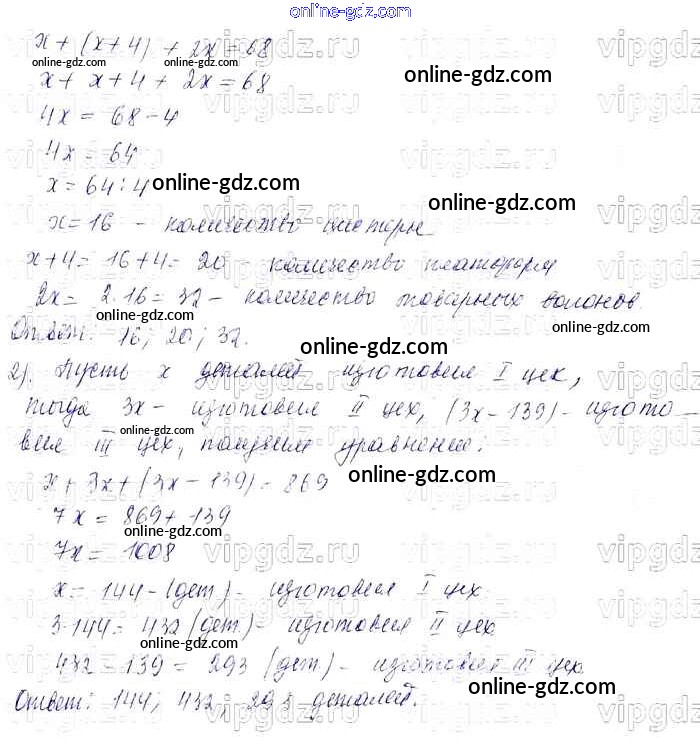 online-gdz.com
x + (x+4) + 2x = 68
online-gdz.com online-gdz.com
x + x + 4 + 2x = 68 online-gdz.com
4x = 68 - 4
4x = 64
x = 64 : 4 online-gdz.com
online-gdz.com
x = 16 - количество цистерн
x+4 = 16+4 = 20 - количество платформ
2x = 2·16 = 32 - количество товарных вагонов.
online-gdz.com
Ответ: 16; 20; 32.
online-gdz.com
2). Пусть x деталей изготовил I цех,
тогда 3x - изготовил II цех, (3x - 139) - изгото-
online-gdz.com
вил III цех, получим уравнение:
x + 3x + (3x - 139) = 869 online-gdz.com
7x = 869 + 139
online-gdz.com
7x = 1008
vipgdz.ru
x = 144 - (дет) - изготовил I цех
online-gdz.com
3·144 = 432 (дет) - изготовил II цех
online-gdz.com
432 - 139 = 293 (дет) - изготовил III цех
online-gdz.com
Ответ: 144; 432; 293 деталей.
online-gdz.com